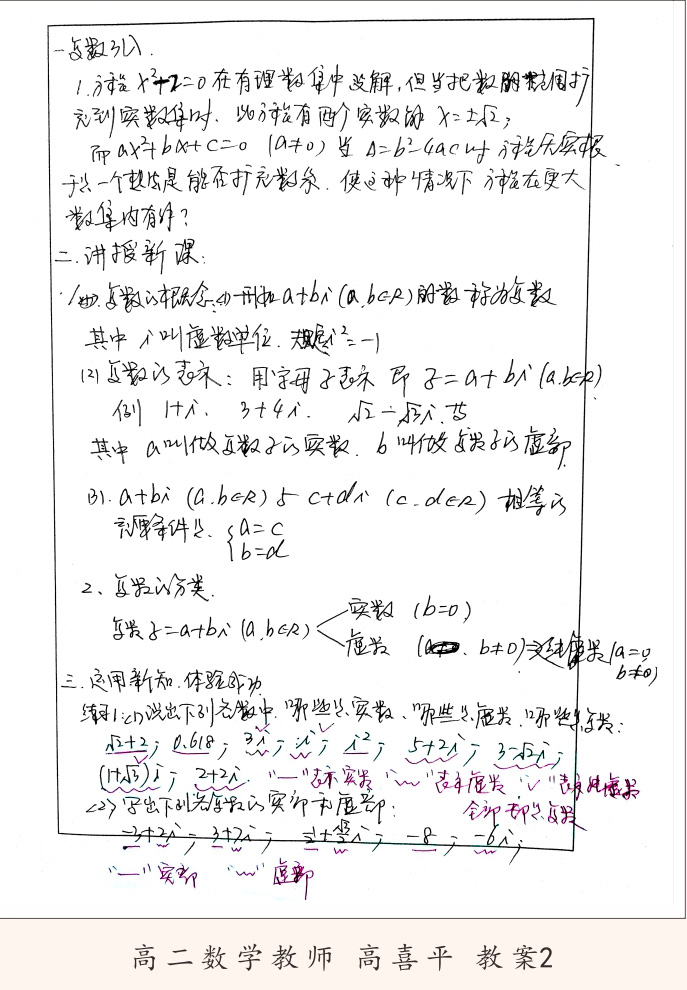 一.复数引入.
1.方程x²-2=0在有理数集中没解,但当把数的范围扩
充到实数集时.此方程有两个实数解 x=±√2;
而 ax²+bx+c=0 (a≠0) 当 Δ=b²-4ac 时 方程无实根.
于是一个想法是能否扩充数系.使这种情况下 方程在更大
数集内有解?
二.讲授新课:
1.复数的概念:(1)形如 a+bi (a,b∈R)的数称为复数
其中 i 叫虚数单位.规定 i²=-1
(2)复数的表示:用字母z表示 即 z=a+bi (a,b∈R)
例 1+i. 3+4i. √2-√3i.等
其中 a叫做复数z的实数. b叫做复数z的虚部.
(3). a+bi (a.b∈R) 与 c+di (c.d∈R) 相等的
充要条件是. {a=c
b=d
2、复数的分类.
复数z=a+bi (a,b∈R)
实数 (b=0)
虚数 (a . b≠0) 纯虚数 {a=0
b≠0}
三.运用新知.体验成功
练习1:(1)说出下列各数中,哪些是实数、哪些是虚数.哪些是复数:
√2+2; 0.618; 3i; i; i²; 5+2i; 3-√2i;
(1+√3)i; 2+2i. "—"表示实数 "﹏"表示虚数 "√"表示纯虚数
(2)写出下列各复数的实部和虚部: 全部都是复数
-3+2i; 3+7i; 1/2+√3/2i; -8; -6i;
"—"实部 "﹏"虚部
高二数学教师 高喜平 教案2